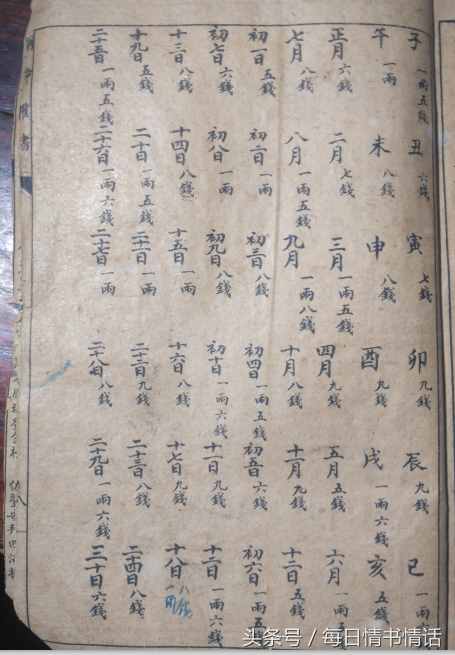 子 一兩五錢 丑 六錢 寅 七錢 卯 九錢 辰 九錢 巳 一兩六
午 一兩 未 八錢 申 八錢 酉 九錢 戌 一兩六錢 亥 五錢
正月 六錢 二月 七錢 三月 一兩五錢 四月 九錢 五月 五錢 六月 一兩五
七月 八錢 八月 一兩五錢 九月 一兩八錢 十月 八錢 十一月 九錢 十二月 五錢
初一日 五錢 初二日 一兩 初三日 八錢 初四日 一兩五錢 初五日 六錢 初六日 一兩五錢
初七日 六錢 初八日 一兩 初九日 八錢 初十日 一兩六錢 十一日 九錢 十二日 一兩六錢
十三日 八錢 十四日 八錢 十五日 一兩 十六日 八錢 十七日 九錢 十八日
十九日 五錢 二十日 一兩五錢 二十一日 一兩 二十二日 九錢 二十三日 八錢 二十四日 八錢
二十五日 一兩五錢 二十六日 一兩六錢 二十七日 一兩 二十八日 八錢 二十九日 一兩六錢 三十日 六錢
头条号 / 每日情书情话